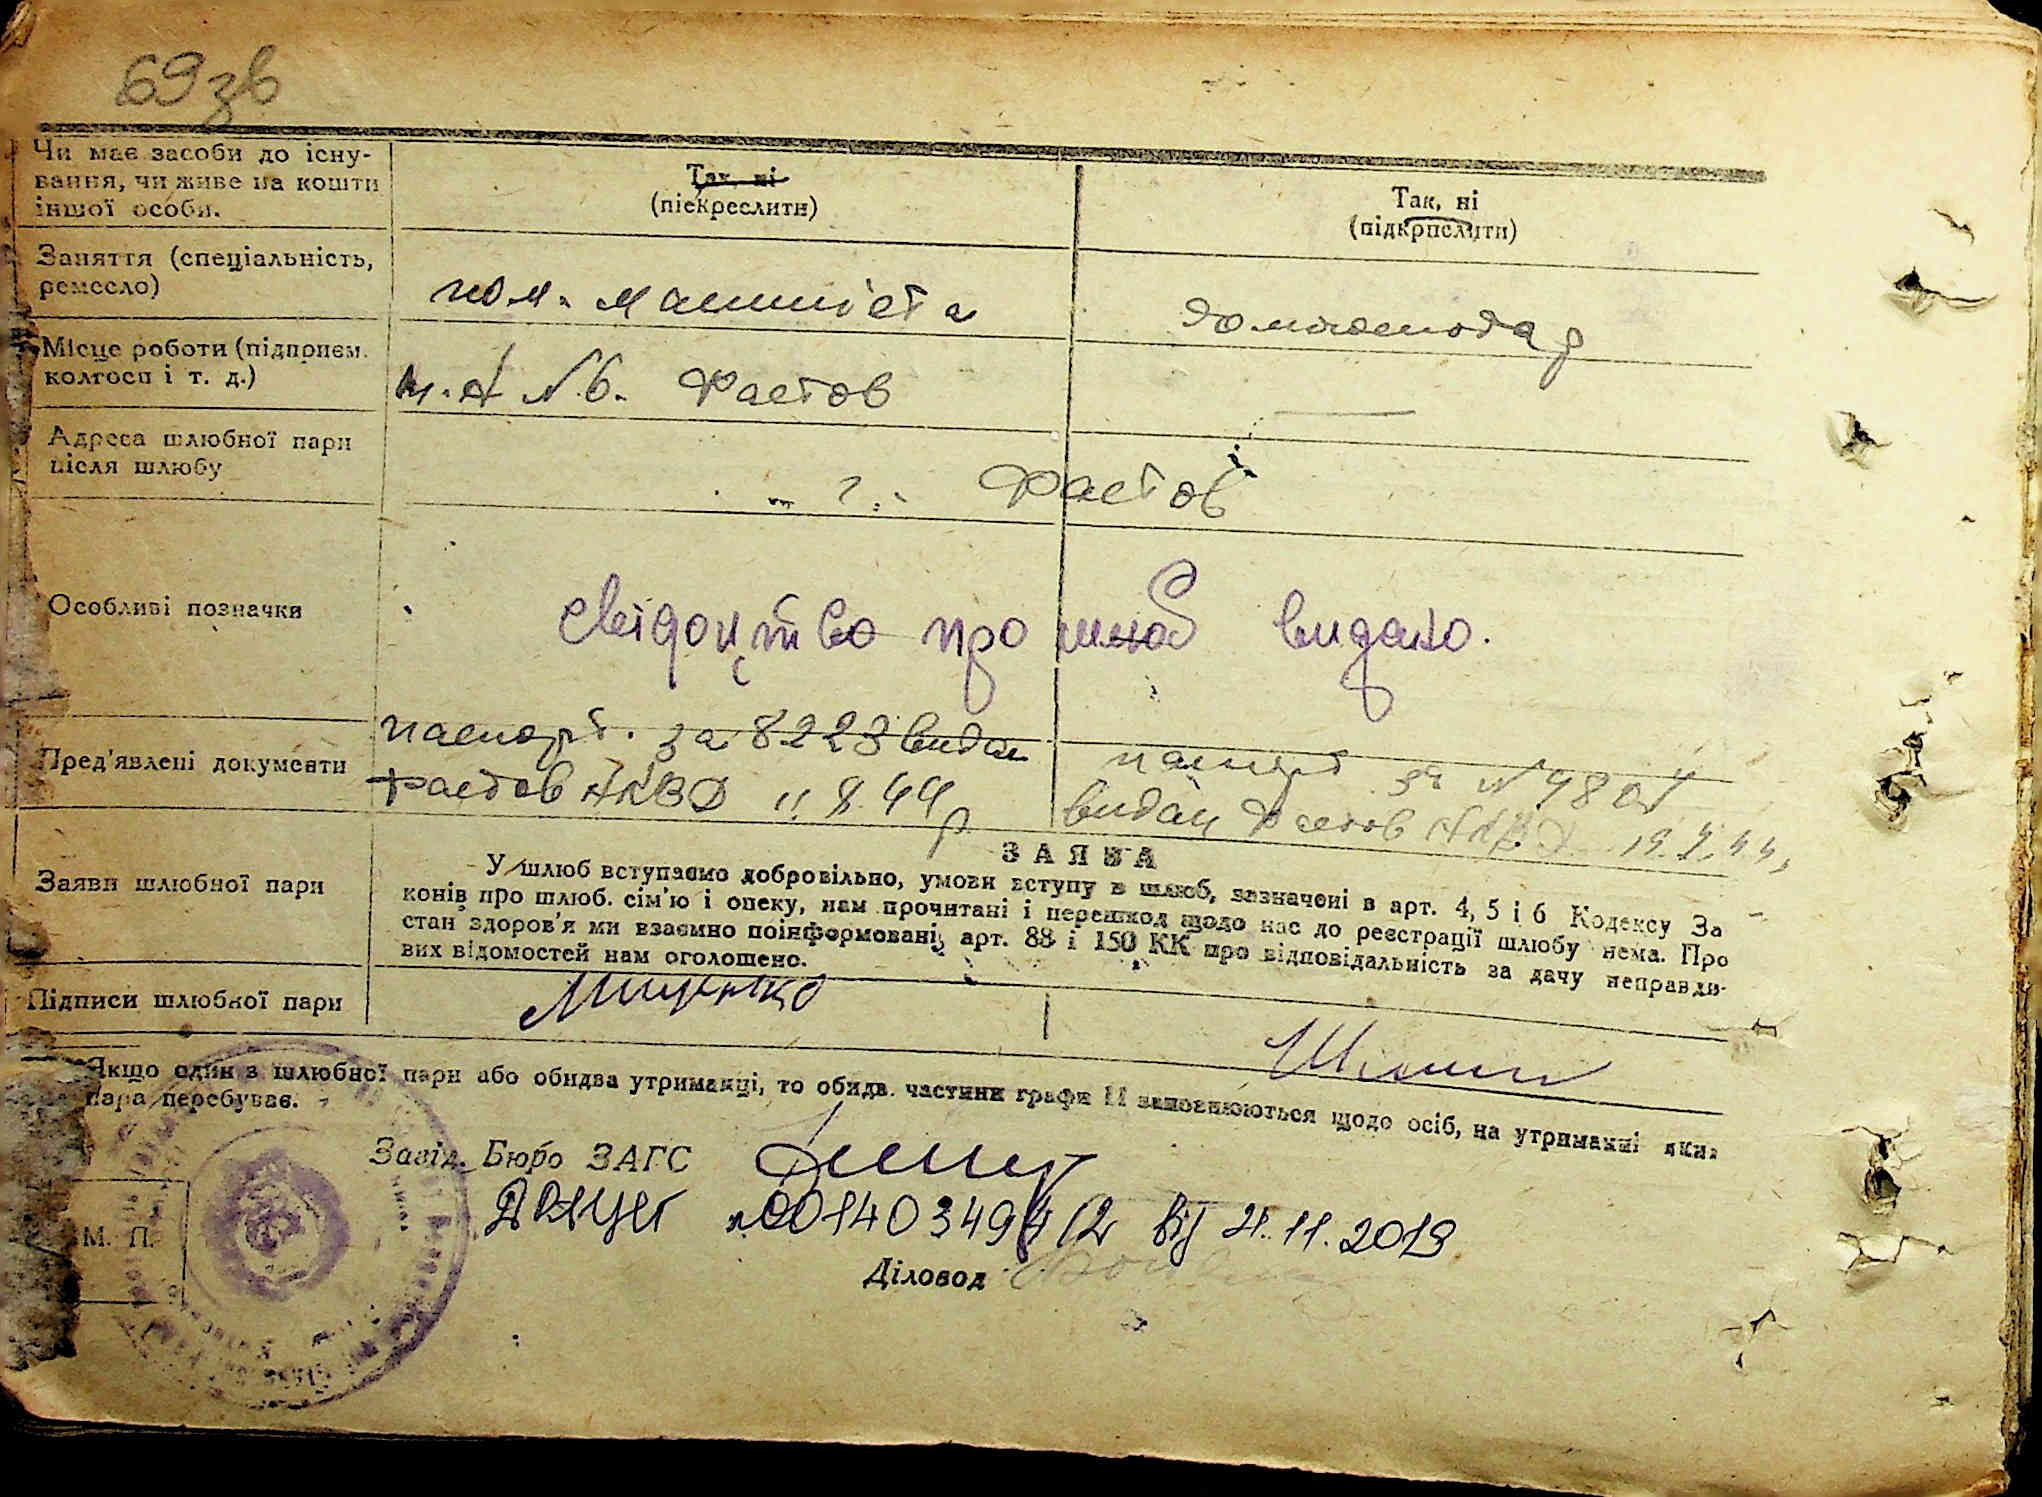 69зв
Чи має засоби до існу-
вання, чи живе на кошти
іншої особи.
Так, ні
(піекреслити)
Так, ні
(підкрпслити)
Заняття (спеціальність,
ремесло)
пом. машиніста
домгосподар
Місце роботи (підприєм.
колгосп і т. д.)
Фастов
Адреса шлюбної пари
після шлюбу
г. Фастов
Особливі позначки
свідоцтво про шлюб видано.
Пред'явлені документи
паспорт. за 8223 видан
Фастов НКВД 44р
паспорт за №
видан Фастов НКВД
ЗАЯВА
У шлюб вступаємо добровільно, умови вступу в шлюб, зазначені в арт. 4, 5 і 6 Кодексу За
конів про шлюб. сім'ю і опеку, нам прочитані і перешкод щодо нас до реєстрації шлюбу нема. Про
стан здоров'я ми взаємно поінформовані, арт. 88 і 150 КК про відповідальність за дачу неправди-
вих відомостей нам оголошено.
Заяви шлюбної пари
Підписи шлюбної пари
Мищенко
Якщо один з шлюбної пари або обидва утриманці, то обидв. частини графи 11 заповнюються щодо осіб, на утриманні яких
пара перебуває.
Завід. Бюро ЗАГС
М. П.
від 21.11.2019
Діловод